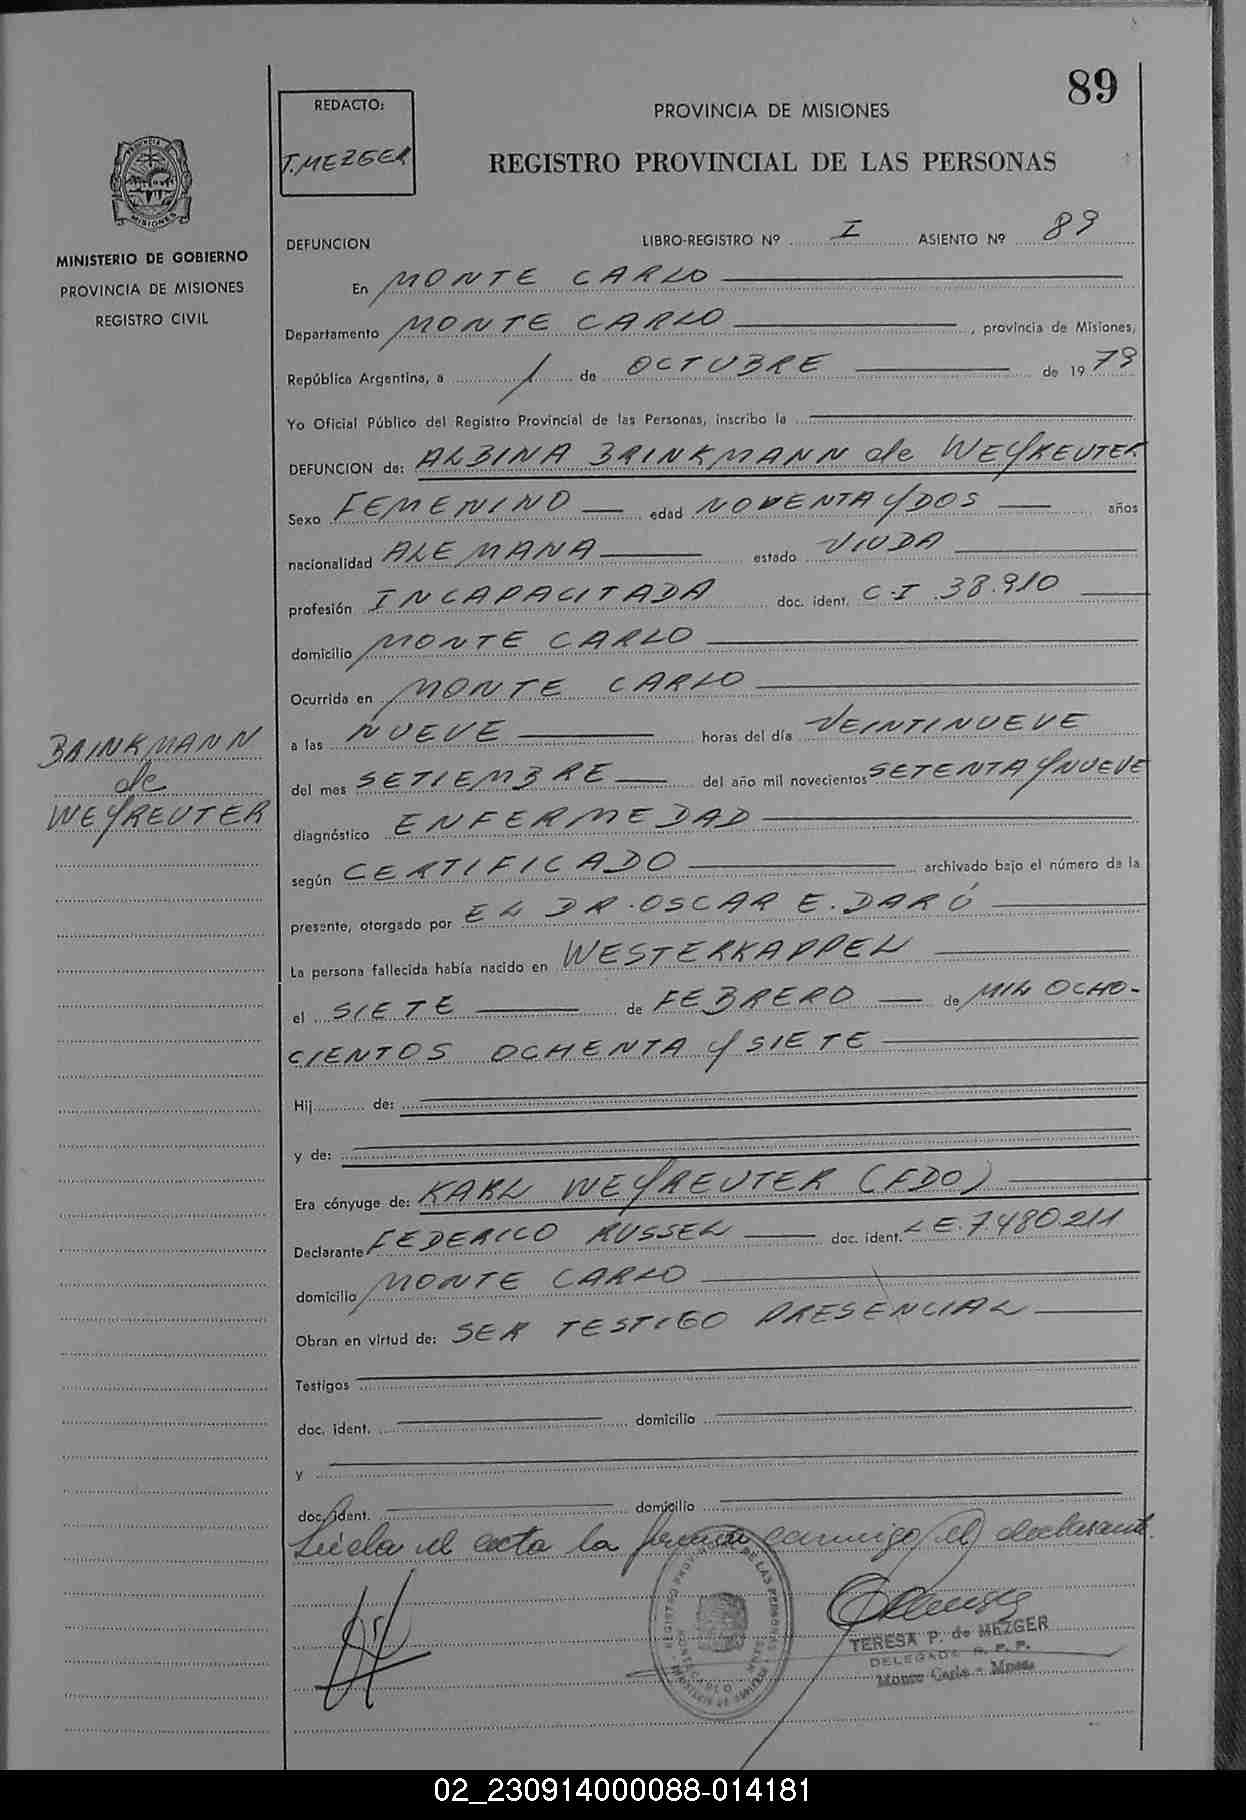 89
REDACTO:
T. MEZGER
PROVINCIA DE MISIONES
REGISTRO PROVINCIAL DE LAS PERSONAS
PROVINCIA DE
MISIONES
MINISTERIO DE GOBIERNO
PROVINCIA DE MISIONES
REGISTRO CIVIL
DEFUNCION LIBRO-REGISTRO Nº I ASIENTO Nº 89
En MONTE CARLO
Departamento MONTE CARLO, provincia de Misiones,
República Argentina, a 1 de OCTUBRE de 1979
Yo Oficial Público del Registro Provincial de las Personas, inscribo la
DEFUNCION de: ALBINA BRINKMANN de WEYREUTER
Sexo FEMENINO edad NOVENTA Y DOS años
nacionalidad ALEMANA estado VIUDA
profesión INCAPACITADA doc. ident. C.I. 38.910
domicilio MONTE CARLO
Ocurrida en MONTE CARLO
a las NUEVE horas del día VEINTINUEVE
del mes SETIEMBRE del año mil novecientos SETENTA Y NUEVE
diagnóstico ENFERMEDAD
según CERTIFICADO archivado bajo el número de la
presente, otorgado por EL DR. OSCAR E. DARÓ
La persona fallecida había nacido en WESTERKAPPEL
el SIETE de FEBRERO de MIL OCHO-
CIENTOS OCHENTA Y SIETE
Hij de:
y de:
Era cónyuge de: KARL WEYREUTER (FDO)
Declarante FEDERICO RUSSEL doc. ident. L.E. 7.480.211
domicilio MONTE CARLO
Obran en virtud de: SER TESTIGO PRESENCIAL
Testigos
doc. ident. domicilio
y
doc. ident. domicilio
Leída el acta la firma conmigo el declarante.
BRINKMANN
de
WEYREUTER
TERESA P. de MEZGER
DELEGADA R. P. P.
Monte Carlo - Mnes.
02_230914000088-014181